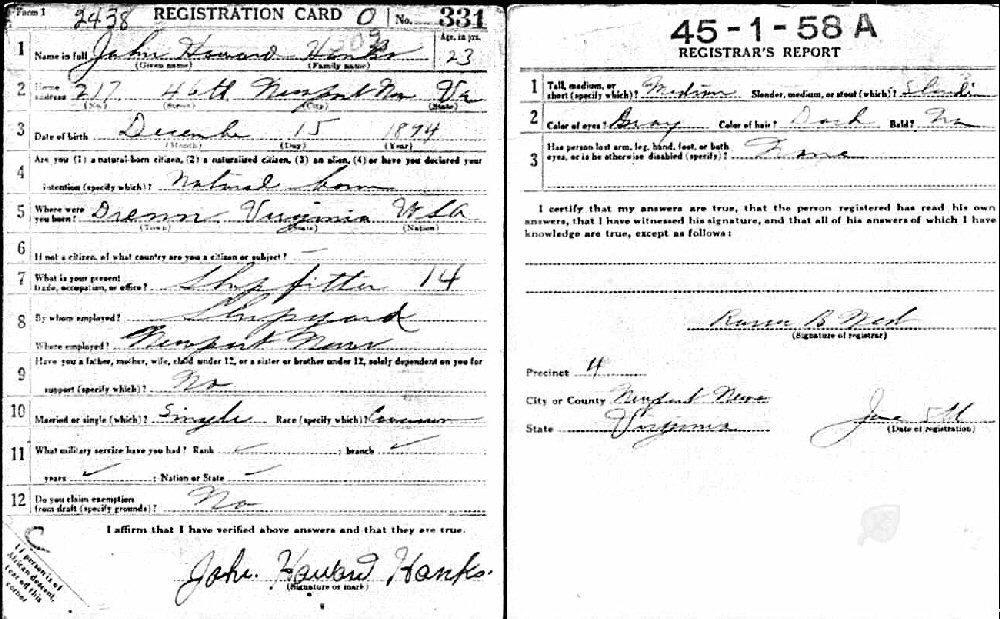 Form 1 2438 REGISTRATION CARD No. 331
1 Name in full John Howard Hanks Age, in yrs. 23
(Given name) (Family name)
2 Home address 217 46th Newport News Va
(No.) (Street) (City) (State)
3 Date of birth December 15 1894
(Month) (Day) (Year)
4 Are you (1) a natural-born citizen, (2) a naturalized citizen, (3) an alien, (4) or have you declared your
intention (specify which)? Natural born
5 Where were you born? Virginia USA
(Town) (State) (Nation)
6 If not a citizen, of what country are you a citizen or subject? —
7 What is your present trade, occupation, or office? Ship fitter 14
8 By whom employed? Shipyard
Where employed? Newport News
9 Have you a father, mother, wife, child under 12, or a sister or brother under 12, solely dependent on you for
support (specify which)? No
10 Married or single (which)? Single Race (specify which)? Caucasian
11 What military service have you had? Rank ; branch
years ; Nation or State
12 Do you claim exemption from draft (specify grounds)? No
I affirm that I have verified above answers and that they are true.
John. Howard Hanks.
(Signature or mark)
If person is of
African descent,
tear off this
corner
45-1-58 A
REGISTRAR'S REPORT
1 Tall, medium, or short (specify which)? Medium Slender, medium, or stout (which)? Slender
2 Color of eyes? Gray Color of hair? Dark Bald? No
3 Has person lost arm, leg, hand, foot, or both eyes, or is he otherwise disabled (specify)? None
I certify that my answers are true, that the person registered has read his own
answers, that I have witnessed his signature, and that all of his answers of which I have
knowledge are true, except as follows:
(Signature of registrar)
Precinct 4
City or County Newport News
State Virginia
June
(Date of registration)